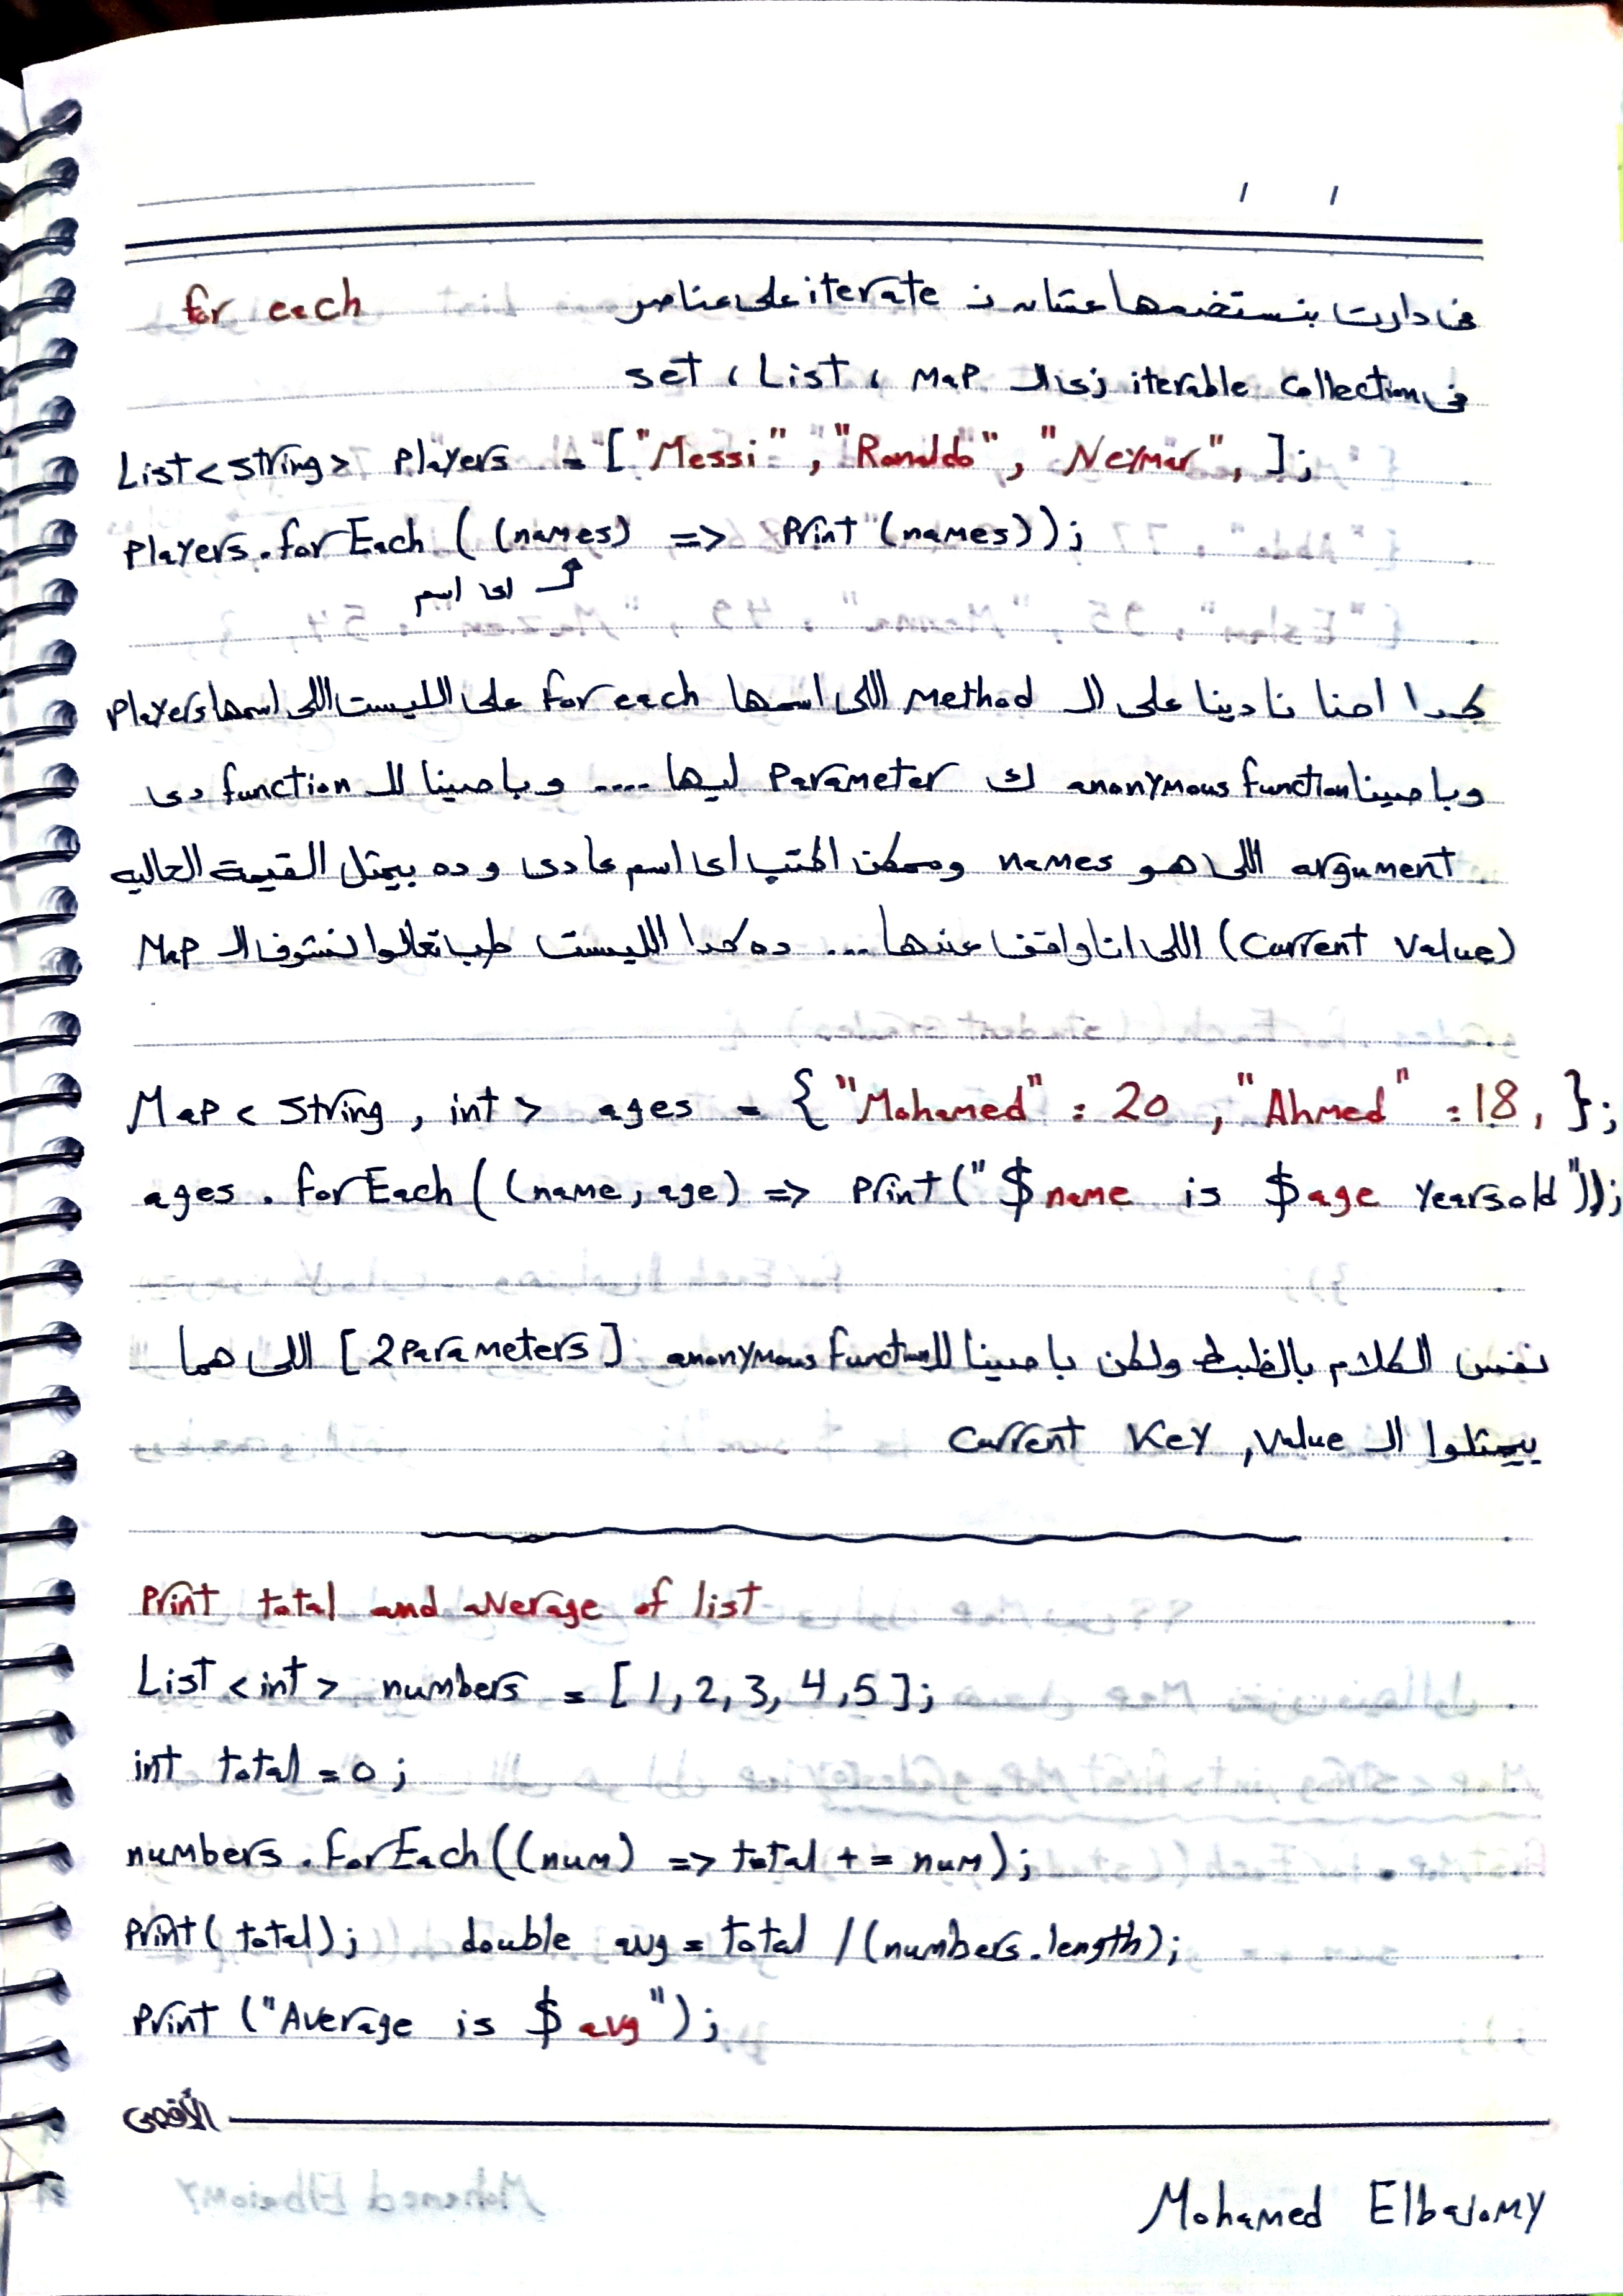 for each في دارت بنستخدمها عشان نـ iterate على عناصر
في iterable collection زي الـ set ، List ، Map
List<string> players = ["Messi", "Ronaldo", "Neymar", ];
players.forEach ( (names) => print (names));
اى اسم
كدا احنا نادينا على الـ Method اللى اسمها for each على الليست اللى اسمها players
وباصينا anonymous function ك parameter ليها .... وباصينا للـ function دى
argument اللى هو names وممكن اكتب اى اسم عادى وده بيمثل القيمة الحاليه
(current value) اللى انا واقف عندها ... ده كدا الليست طب تعالوا نشوف الـ Map
Map < String , int > ages = { "Mohamed" : 20 , "Ahmed" : 18, };
ages . forEach ( (name, age) => print(" $name is $age years old"));
نفس الكلام بالظبط ولكن باصينا للـ anonymous function [2 parameters] اللى هما
بيمثلوا الـ current key , value
print total and average of list
List <int> numbers = [ 1, 2, 3, 4, 5 ];
int total = 0 ;
numbers . forEach ( (num) => total += num) ;
print( total) ; double avg = total / (numbers.length);
print ("Average is $ avg") ;
الأقصى
Mohamed Elbaiomy